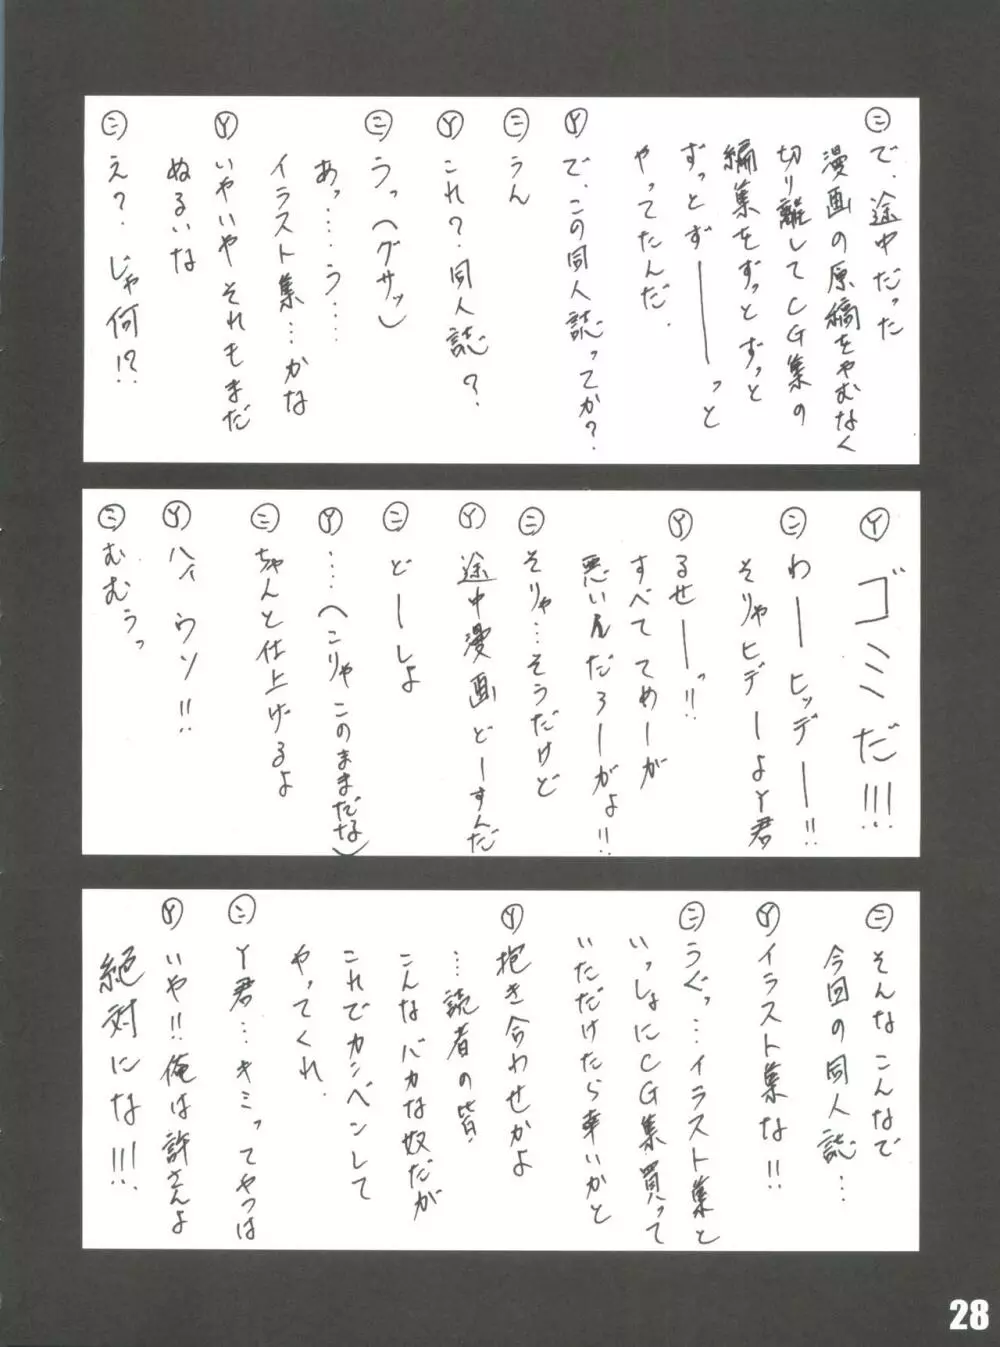 ㊁ で、途中だった
漫画の原稿をやむなく
切り離してCG集の
編集をずっとずっと
ずっとず———っと
やってたんだ.
Ⓨ で、この同人誌ってか?
㊁ うん
Ⓨ これ?.同人誌?
㊁ うっ(グサッ)
あっ……う……
イラスト集…かな
Ⓨ いやいや それもまだ
ぬるいな
㊁ え?.じゃ何!?
Ⓨ ゴミだ!!!
㊁ わーヒッデー!!
そりゃヒデーよY君
Ⓨ るせーっ!!
すべててめーが
悪いんだろーがよ!!
㊁ そりゃ…そうだけど
Ⓨ 途中漫画どーすんだ
㊁ どーしよ
Ⓨ ……(こりゃこのままだな)
㊁ ちゃんと仕上げるよ
Ⓨ ハイ ウソ!!
㊁ むむうっ
㊁ そんなこんなで
今回の同人誌…
Ⓨ イラスト集な!!
㊁ うぐっ…イラスト集と
いっしょにCG集買って
いただけたら幸いかと
Ⓨ 抱き合わせかよ
……読者の皆.
こんなバカな奴だが
これでカンベンして
やってくれ.
㊁ Y君…キミってやつは
Ⓨ いや!!俺は許さんよ
絶対にな!!!
28